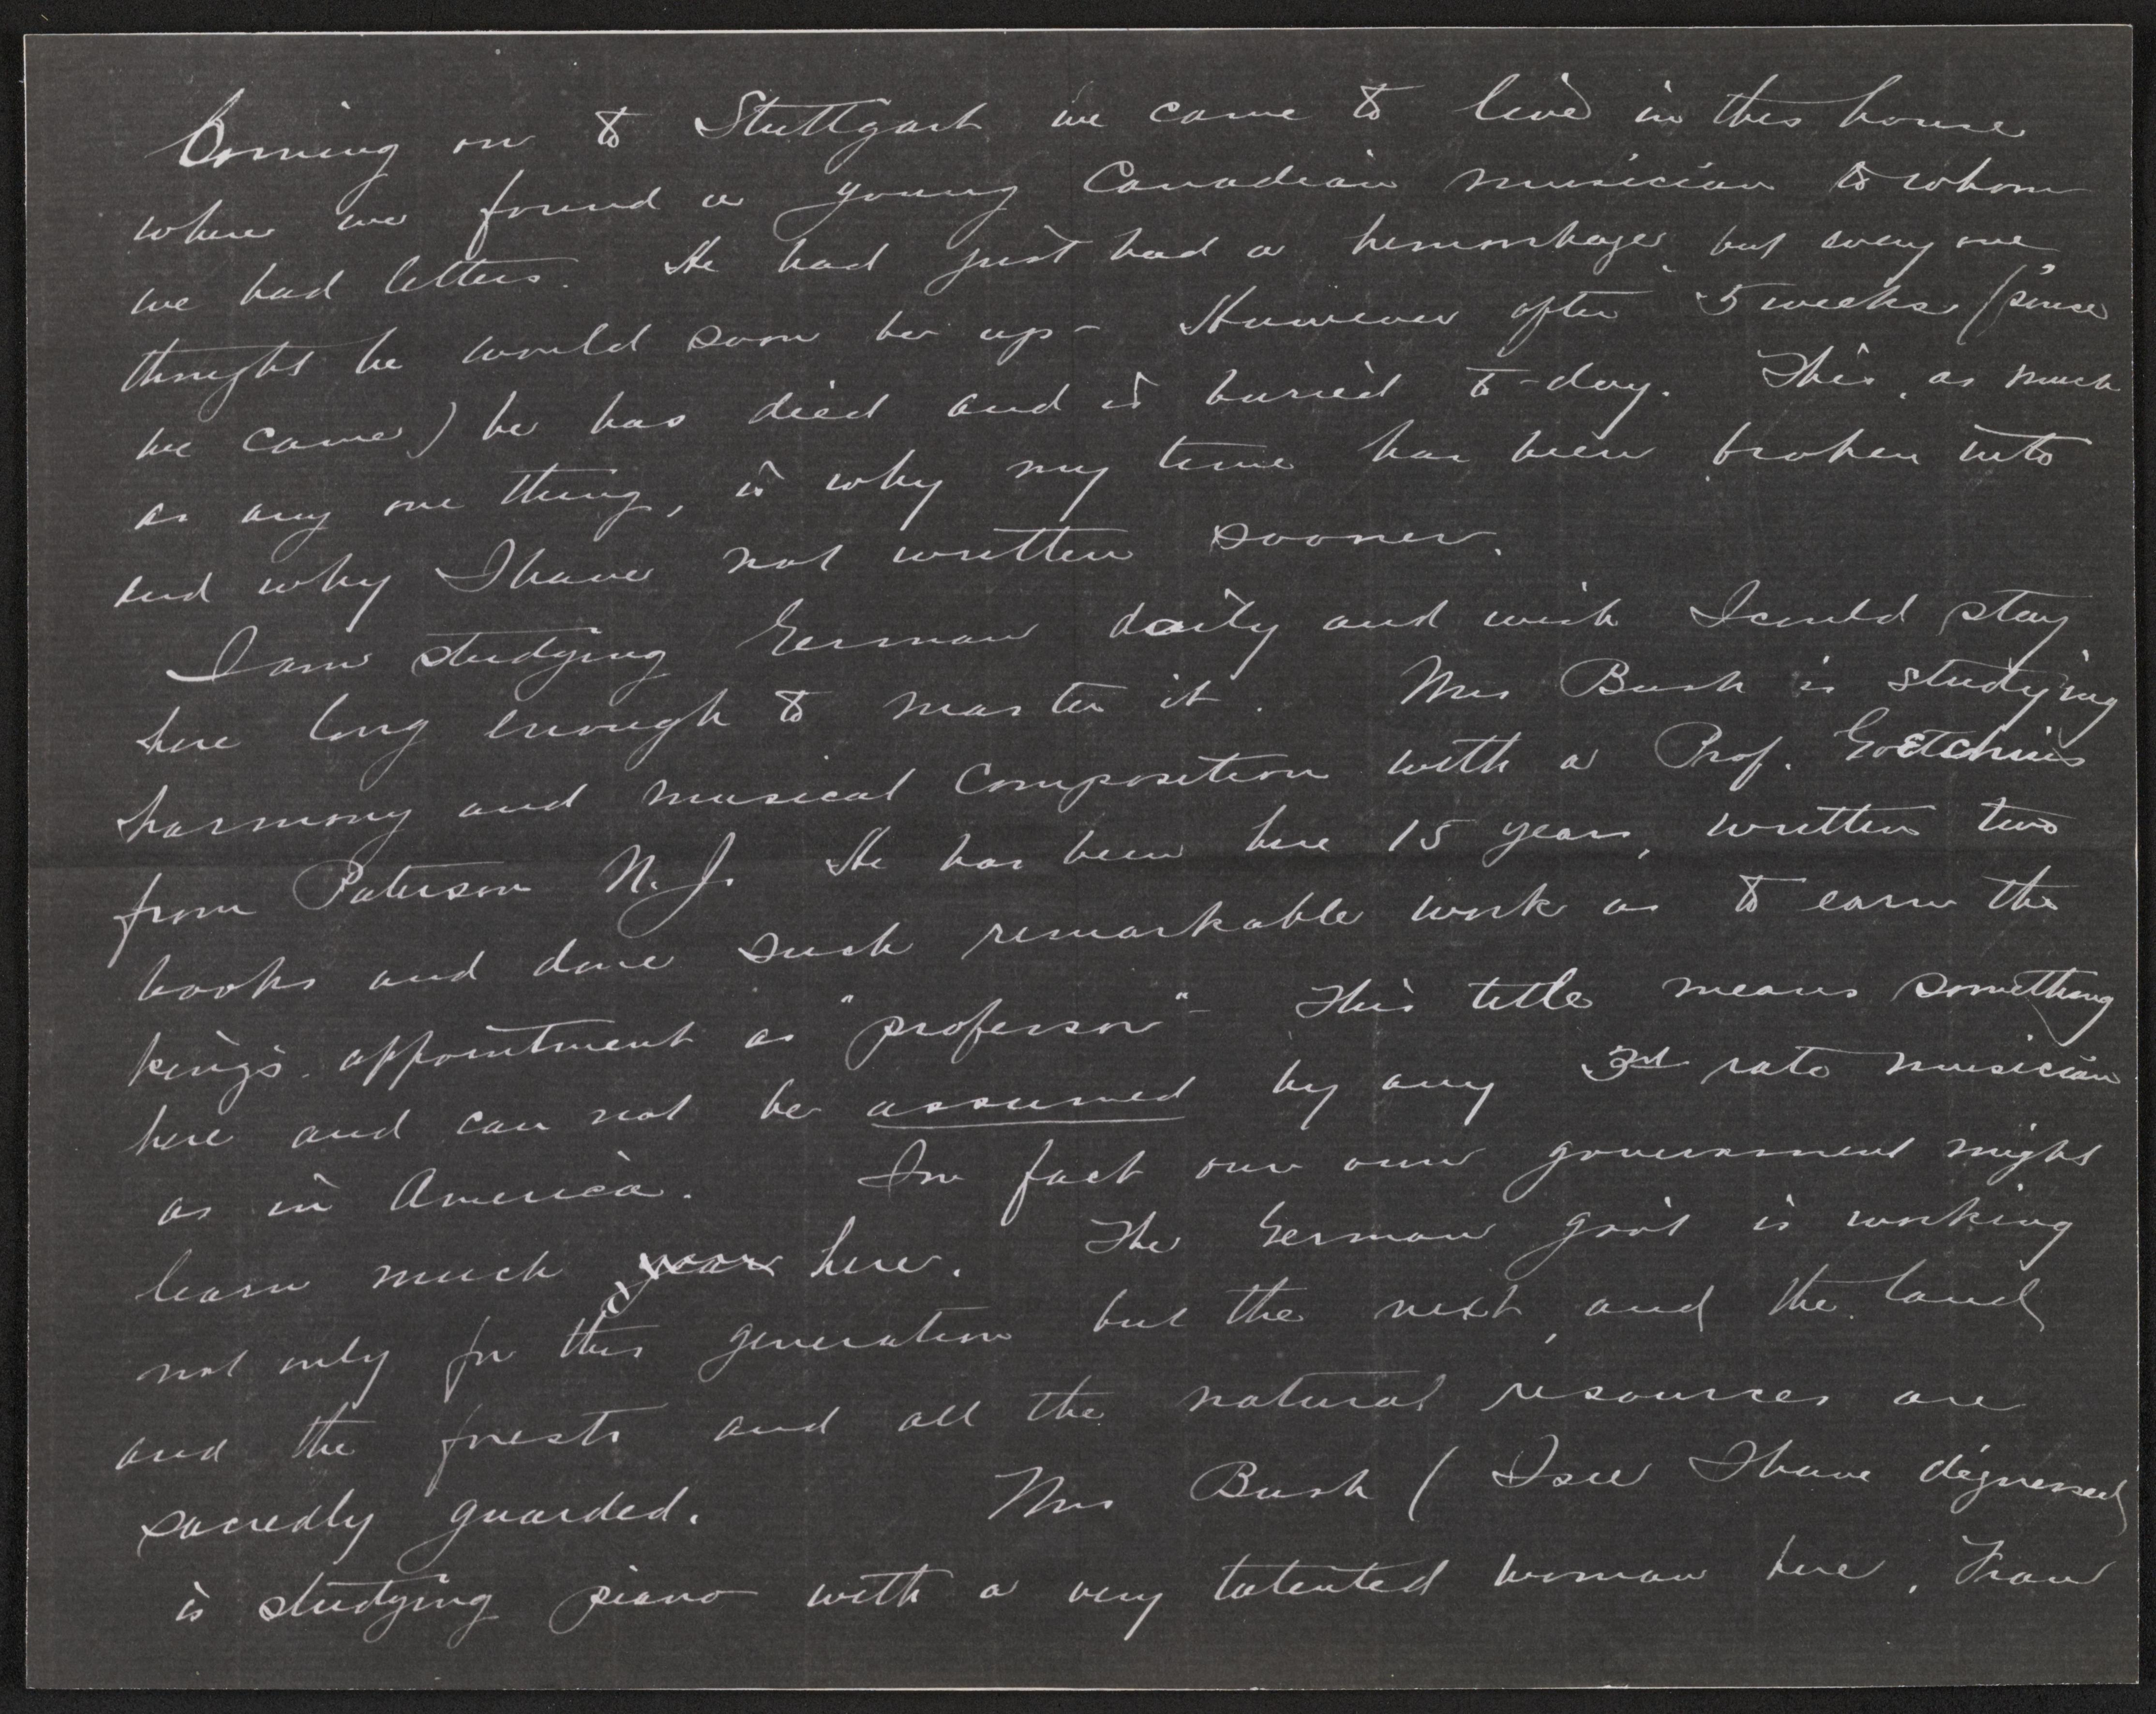 Coming on to Stuttgart we came to live in this house
where we found a young Canadian musician to whom
we had letters. He had just had a hemorrhage, but every one
thought he would soon be up - However after 5 weeks (since
we came) he has died and is buried to-day. This, as much
as any one thing, is why my time has been broken into
and why I have not written sooner.
I am studying German daily and wish I could stay
here long enough to master it. Mrs Bush is studying
harmony and musical composition with a Prof. Goetchius
from Paterson N. J. He has been here 15 years, written two
books and done such remarkable work as to earn the
king's appointment as "professor" - This title means something
here and can not be assumed by any 3rd rate musician
as in America. In fact our own government might
learn much here. The German gov't is working
not only for this generation but the next, and the land
and the forests and all the natural resources are
sacredly guarded. Mrs Bush (I see I have digressed)
is studying piano with a very talented woman here, Frau